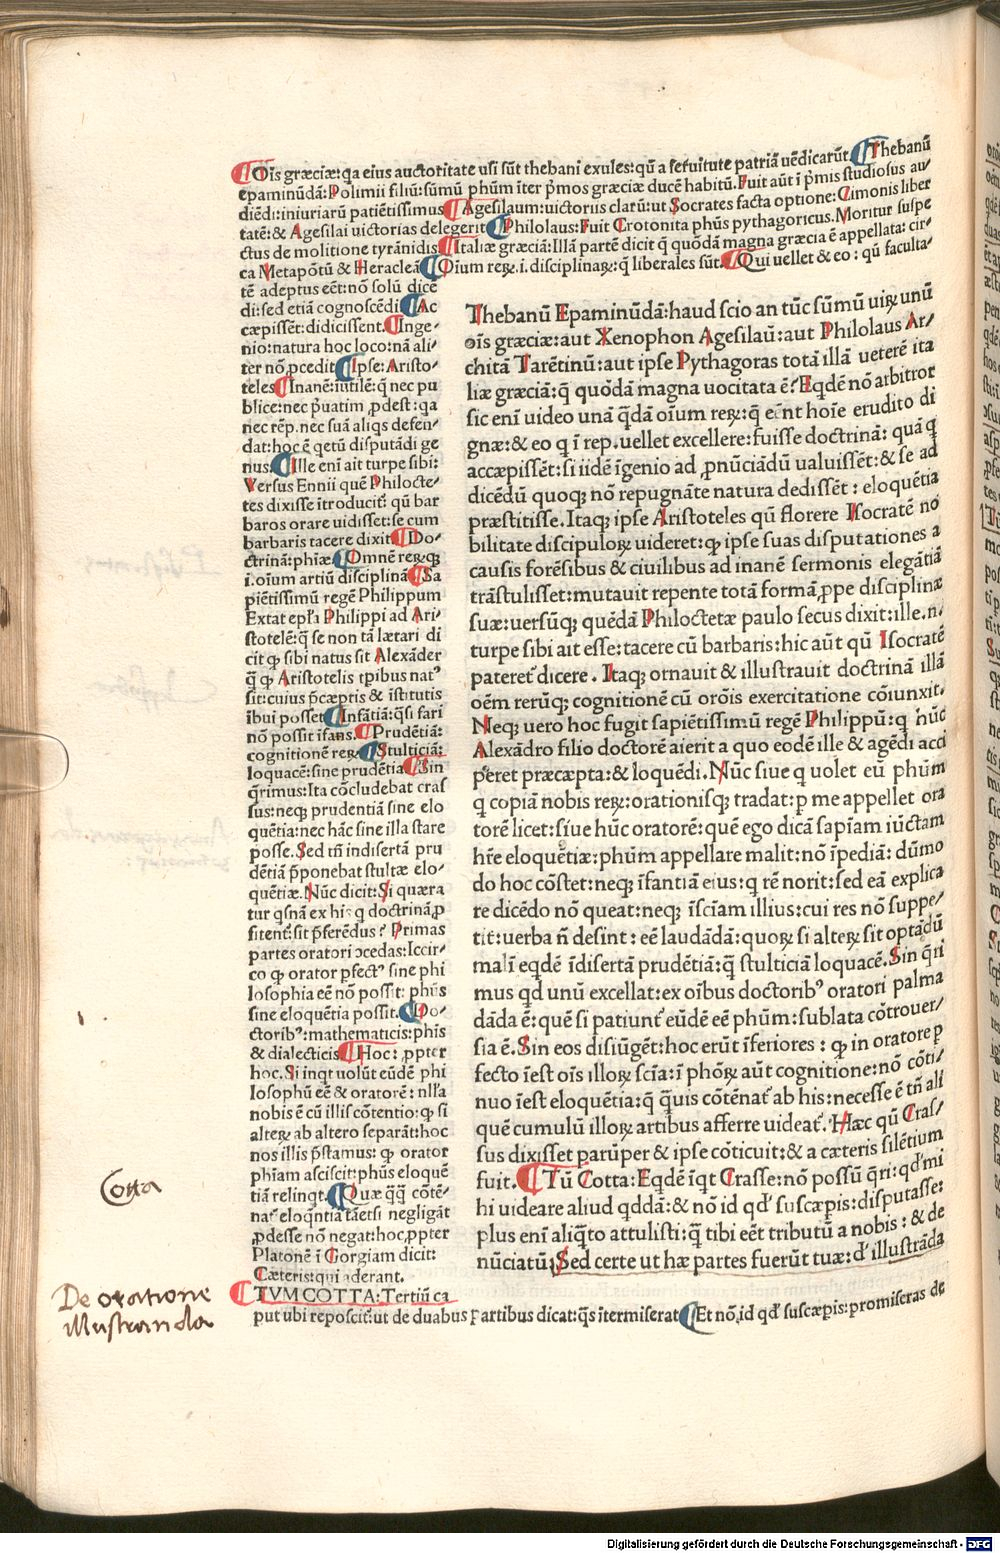 Oīs græciæ: qa eius auctotitate usi sūt thebani exules: qū a seruitute patriā uēdicarūt. Thebanū
epaminūdā: Polimii filiū: sūmū phūm īter p̄mos græciæ ducē habitū. Fuit aūt ī p̄mis studiosus au
diēdi: iniuriarū patiētissimus Agesilaum: uictoriis clarū: ut Socrates facta optione: Cimonis liber
tatē: & Agesilai uictorias delegerit Philolaus: Fuit Crotonita phūs pythagoricus. Moritur suspe
ctus de molitione tyrānidis Italiæ græciā: Illā partē dicit q̄ quōdā magna græcia ē appellata: cir⸗
ca Metapōtū & Heracleā Oium reꝝ. i. disciplinaꝝ: q̄ liberales sūt. Qui uellet & eo: qū faculta⸗
tē adeptus eēt: nō solū dicē
di: sed etiā cognoscēdi Ac
cæpissēt: didicissent. Inge⸗
nio: natura hoc loco: nā ali⸗
ter nō ꝓcedit Ipse: Aristo⸗
teles Inanē: iutilē: q̄ nec pu
blice: nec p̄uatim ꝓdest: qa
nec rēp. nec suā aliqs defen⸗
dat: hoc ē qetū disputādi ge
nus. Ille enī ait turpe sibi:
Versus Ennii quē Philocte⸗
tes dixisse ītroducit: qū bar
baros orare uidisset: se cum
barbaris tacere dixit Do⸗
ctrinā: phiæ Omnē reꝝqꝫ
.i. oīum artiū disciplinā Sa
piētissimū regē Philippum
Extat epl'a Philippi ad Ari⸗
stotelē: q̄ se non tā lætari di
cit ꝙ sibi natus sit Alexāder
q̄ ꝙ Aristotelis tpibus natꝰ
sit: cuius p̄cæptis & īstitutis
ībui posset Infātiā: q̄si fari
nō possit ifans. Prudētiā:
cognitionē reꝝ Stulticiā:
loquacē: sine prudētia Sin
q̄rimus: Ita cōcludebat cras
sus: neqꝫ prudentiā sine elo
quētia: nec hāc sine illa stare
posse. Sed tn̄ indisertā pru
dētiā p̄ponebat stultæ elo⸗
quētiæ. Nūc dicit: Si quæra
tur qsnā ex his q doctrinā ꝓ
sitent: sit p̄ferēdus? Primas
partes oratori ɔcedas: Iccir⸗
co ꝙ orator ꝑfectꝰ sine phi
losophia eē nō possit: phūs
sine eloquētia possit. Do⸗
ctoribꝰ: mathematicis: phīs
& dialecticis Hoc: ꝓpter
hoc. Si inqt uolūt eūdē phi
losophū eē & oratorē: nl'la
nobis ē cū illis cōtentio: ꝙ si
alteꝝ ab altero separāt: hoc
nos illis p̄stamus: ꝙ orator
phiam asciscit: phūs eloquē
tiā relinqt. Quæ q̄q̄ cōtē⸗
nat eloqntiā tāetsi negligāt
ꝓdesse nō negat: hoc ꝓpter
Platonē ī Gorgiam dicit:
Cæteris: qui aderant.
TVM COTTA: Tertiū ca
put ubi reposcit: ut de duabus partibus dicat: qs ītermiserat Et nō id qd' suscæpis: promiseras de
Thebanū Epaminūdā: haud scio an tūc sūmū uiꝝ unū
oīs græciæ: aut Xenophon Agesilaū: aut Philolaus Ar⸗
chitā Tarētinū: aut ipse Pythagoras totā illā ueterē ita
liæ græciā: q̄ quōdā magna uocitata ē? Eqdē nō arbitror
sic enī uideo unā q̄dā oīum reꝝ: q̄ eēnt hoīe erudito di
gnæ: & eo q ī rep. uellet excellere: fuisse doctrinā: quā q
accæpissēt: si iidē īgenio ad ꝓnūciādū ualuissēt: & se ad
dicēdū quoqꝫ nō repugnāte natura dedissēt: eloquētia
præstitisse. Itaqꝫ ipse Aristoteles qū florere Isocratē no
bilitate discipuloꝝ uideret: ꝙ ipse suas disputationes a
causis forēsibus & ciuilibus ad inanē sermonis elegātiā
trāstulisset: mutauit repente totā formā ꝓpe disciplinæ
suæ: uersūqꝫ quēdā Philoctetæ paulo secus dixit: ille. n.
turpe sibi ait esse: tacere cū barbaris: hic aūt qū Isocratē
pateret' dicere. Itaqꝫ ornauit & illustrauit doctrinā illā
oēm rerūqꝫ cognitionē cū orōis exercitatione cōiunxit.
Neqꝫ uero hoc fugit sapiētissimū regē Philippū: q hūc
Alexādro filio doctorē aierit a quo eodē ille & agēdi acci
peret præcæpta: & loquēdi. Nūc siue q uolet eū phūm
q copiā nobis reꝝ: orationisqꝫ tradat: ꝑ me appellet ora
torē licet: siue hūc oratorē: quē ego dicā sapīam iūctam
hr̄e eloquētiæ: phūm appellare malit: nō īpediā: dūmo
do hoc cōstet: neqꝫ īfantiā eius: q rē norit: sed eā explica
re dicēdo nō queat: neqꝫ īscīam illius: cui res nō suppe⸗
tit: uerba n̄ desint: eē laudādā: quoꝝ si alteꝝ sit optādū
malī eqdē īdisertā prudētiā: q̄ stulticiā loquacē. Sin q̄ri
mus qd unū excellat: ex oībus doctoribꝰ oratori palma
dāda ē: quē si patiunt' eūdē eē phūm: sublata cōtrouer⸗
sia ē. Sin eos disiūgēt: hoc erūt īferiores: ꝙ in oratore ꝑ
fecto īest oīs illoꝝ scīa: ī phōꝝ aūt cognitione: nō cōti⸗
nuo īest eloquētia: q̄ q̄uis cōtēnat' ab his: necesse ē tn̄ ali
quē cumulū illoꝝ artibus afferre uideat'. Hæc qū Cras⸗
sus dixisset parūper & ipse cōticuit: & a cæteris silētium
fuit. Tū Cotta: Eqdē īqt Crasse: nō possū q̄ri: qd' mi
hi uideare aliud qddā: & nō id qd' suscæpis: disputasse:
plus enī aliq̄to attulisti: q̄ tibi eēt tributū a nobis: & de
nūciatū; Sed certe ut hæ partes fuerūt tuæ: d' illustrāda
Cotta
De oratione
illustranda
Digitalisierung gefördert durch die Deutsche Forschungsgemeinschaft - DFG